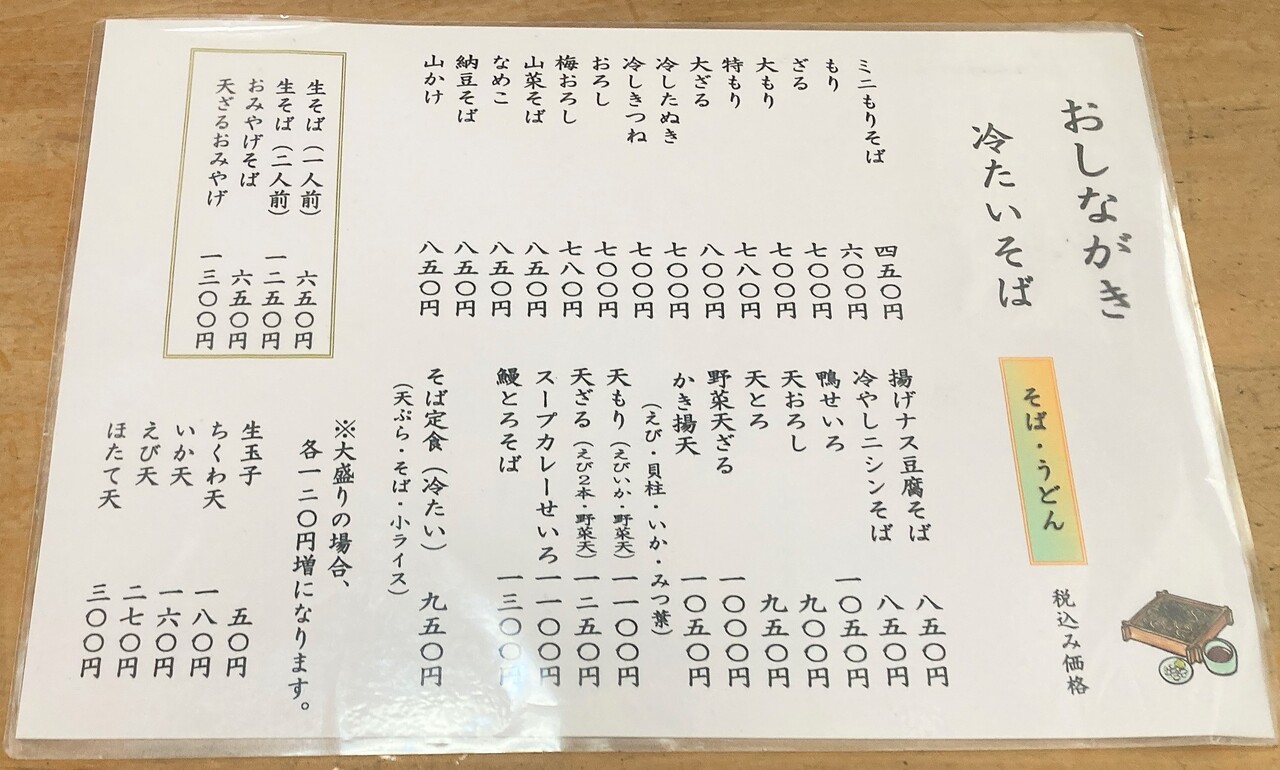 おしながき
冷たいそば
そば・うどん
税込み価格
ミニもりそば 四五〇円
もり 六〇〇円
ざる 七〇〇円
大もり 七〇〇円
特もり 七八〇円
大ざる 八〇〇円
冷したぬき 七〇〇円
冷しきつね 七〇〇円
おろし 七〇〇円
梅おろし 七八〇円
山菜そば 八五〇円
なめこ 八五〇円
納豆そば 八五〇円
山かけ 八五〇円
揚げナス豆腐そば 八五〇円
冷やしニシンそば 八五〇円
鴨せいろ 一〇五〇円
天おろし 九〇〇円
天とろ 九五〇円
野菜天ざる 一〇〇〇円
かき揚天 一〇五〇円
(えび・貝柱・いか・みつ葉)
天もり(えびいか・野菜天) 一一〇〇円
天ざる(えび2本・野菜天) 一二五〇円
スープカレーせいろ 一一〇〇円
鰻とろそば 一三〇〇円
そば定食(冷たい) 九五〇円
(天ぷら・そば・小ライス)
生そば(一人前) 六五〇円
生そば(二人前) 一二五〇円
おみやげそば 六五〇円
天ざるおみやげ 一三〇〇円
※大盛りの場合、
各一二〇円増になります。
生玉子 五〇円
ちくわ天 一八〇円
いか天 一六〇円
えび天 二七〇円
ほたて天 三〇〇円